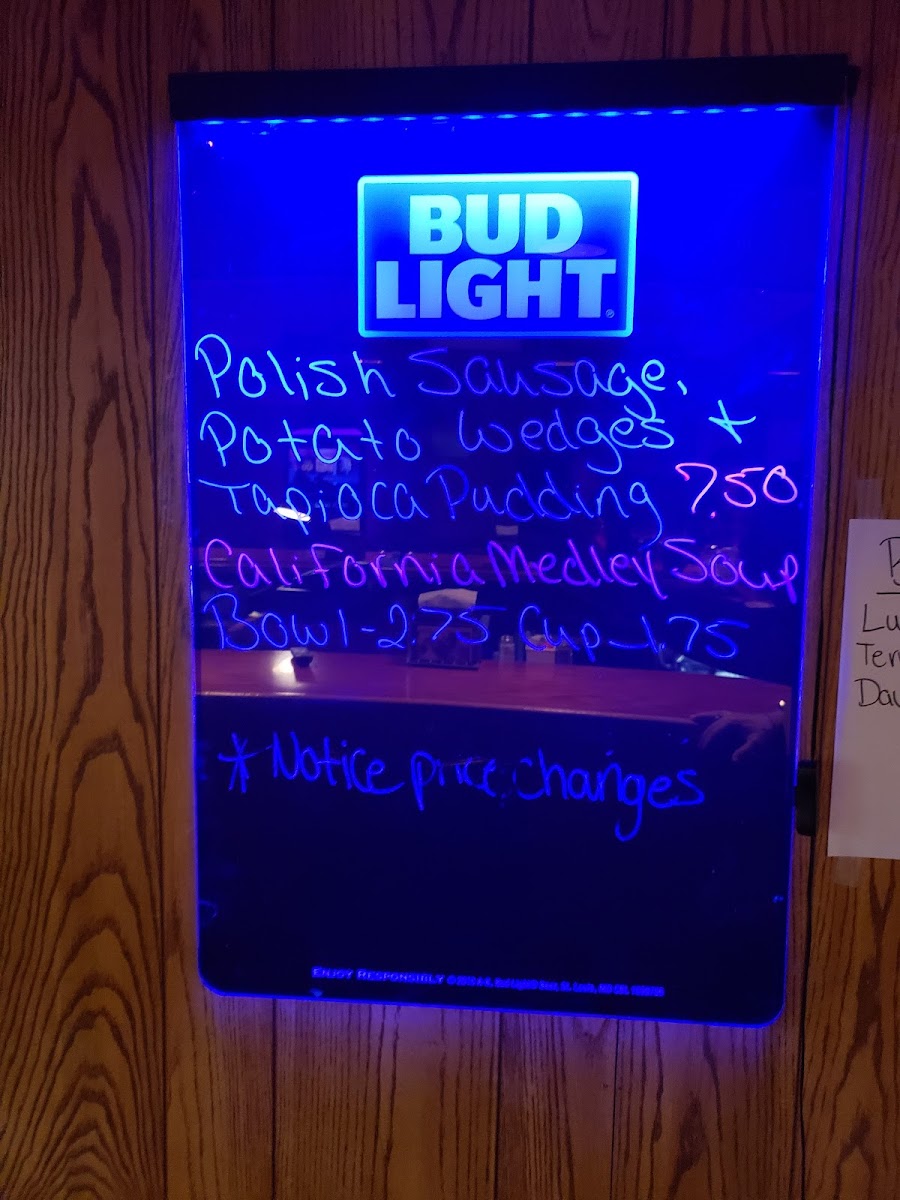 BUD
LIGHT
Polish Sausage,
Potato Wedges +
Tapioca Pudding 7.50
California Medley Soup
Bowl-2.75 Cup-1.75
*Notice price changes
ENJOY RESPONSIBLY
Lu
Ter
Dav